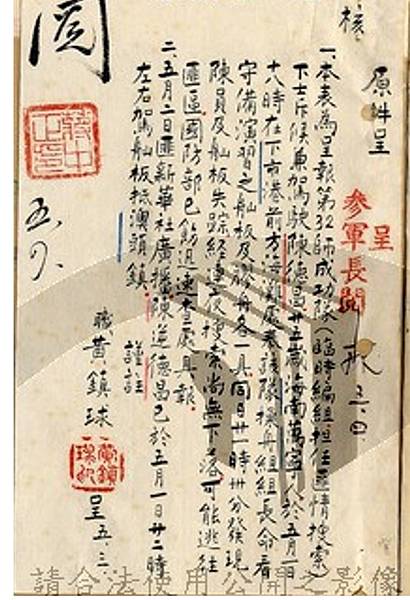 核
原件呈
呈
參軍長閱
五、四
一、本表為呈報第32師成功隊(臨時編組担任匪情搜索)
下士斥候兼駕駛陳德昌廿五歲海南萬寧人於五月一日
十八時在下市港前方海灘處奉該隊操舟組組長命看
守備演習之舢板及膠舟各一具同日廿一時卅分發現
陳員及舢板失踪經連夜搜索尚無下落可能逃往
匪區。國防部已飭迅速查處具報。
二、五月二日匪新華社廣播陳逆德昌已於五月一日廿二時
左右駕舢板抵澳頭鎮。
謹註
職黃鎮球 呈五、三
閱
蔣中正印
五、九、
請合法使用公開之影像